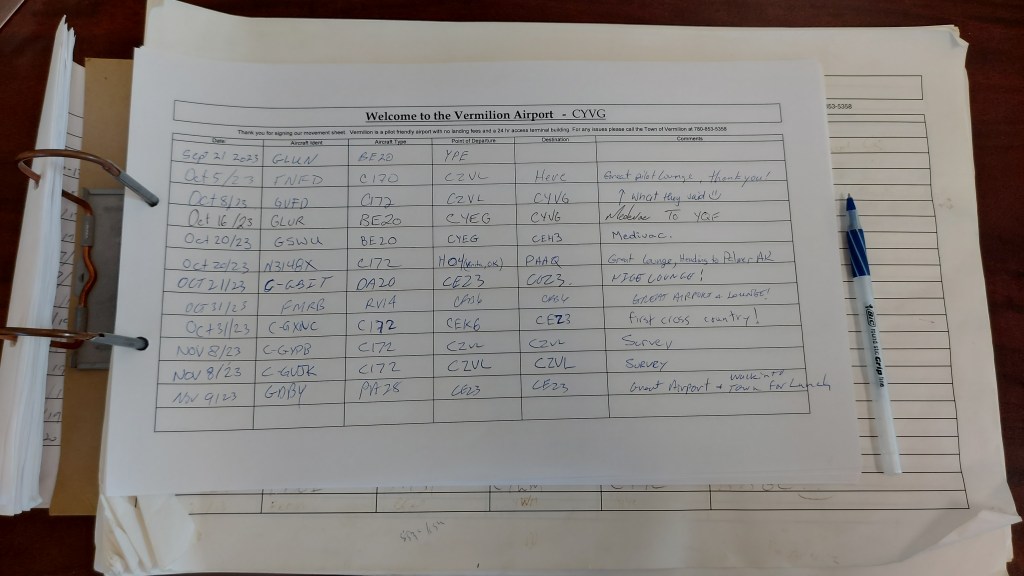 Welcome to the Vermilion Airport - CYVG
Thank you for signing our movement sheet. Vermilion is a pilot friendly airport with no landing fees and a 24 hr access terminal building. For any issues please call the Town of Vermilion at 780-853-5358
Date: Aircraft Ident Aircraft Type Point of Departure Destination Comments
Sep 21 2023 GLUN BE20 YPE
Oct 5/23 FNFD C170 CZVL Here Great pilot lounge, thank you!
Oct 8/23 GVFD C172 CZVL CYVG ↑ What they said
Oct 16/23 GLUR BE20 CYEG CYVG Medevac To
Oct 20/23 GSWU BE20 CYEG CEH3 Medivac.
Oct 20/23 N3148X C172 HO4 PAAQ Great Lounge, Heading to Palmer AK
OCT 21/23 C-GBIT DA20 CE23 CE23. NICE LOUNGE!
OCT 31/23 FMRB RV14 GREAT AIRPORT + LOUNGE!
Oct 31/23 C-GXNC C172 CEK6 CEZ3 First cross country!
NOV 8/23 C-GYPB C172 CZVL CZVL Survey
NOV 8/23 C-GUJK C172 CZVL CZVL SURVEY
Nov 9/23 GDBY PA28 CE23 CE23 Great Airport + walk into Town for Lunch
53-5358
BIC
Grip